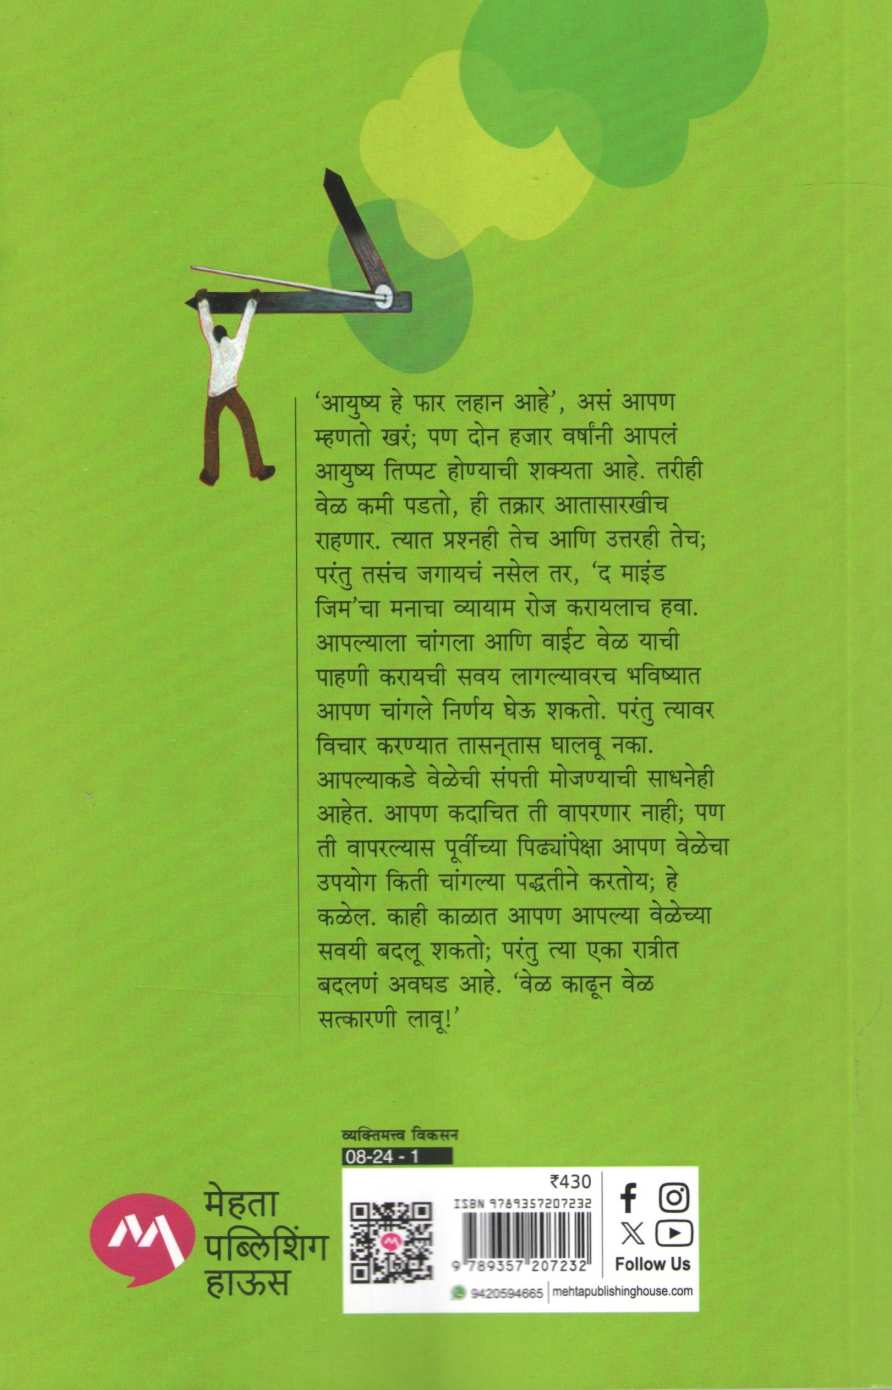 ‘आयुष्य हे फार लहान आहे’, असं आपण
म्हणतो खरं; पण दोन हजार वर्षांनी आपलं
आयुष्य तिप्पट होण्याची शक्यता आहे. तरीही
वेळ कमी पडतो, ही तक्रार आतासारखीच
राहणार. त्यात प्रश्नही तेच आणि उत्तरही तेच;
परंतु तसंच जगायचं नसेल तर, ‘द माइंड
जिम’चा मनाचा व्यायाम रोज करायलाच हवा.
आपल्याला चांगला आणि वाईट वेळ याची
पाहणी करायची सवय लागल्यावरच भविष्यात
आपण चांगले निर्णय घेऊ शकतो. परंतु त्यावर
विचार करण्यात तासन्‌तास घालवू नका.
आपल्याकडे वेळेची संपत्ती मोजण्याची साधनेही
आहेत. आपण कदाचित ती वापरणार नाही; पण
ती वापरल्यास पूर्वीच्या पिढ्यांपेक्षा आपण वेळेचा
उपयोग किती चांगल्या पद्धतीने करतोय; हे
कळेल. काही काळात आपण आपल्या वेळेच्या
सवयी बदलू शकतो; परंतु त्या एका रात्रीत
बदलणं अवघड आहे. ‘वेळ काढून वेळ
सत्कारणी लावू!’
व्यक्तिमत्त्व विकसन
08-24 - 1
मेहता
पब्लिशिंग
हाऊस
₹430
ISBN 9789357207232
9 789357 207232
Follow Us
9420594665 mehtapublishinghouse.com